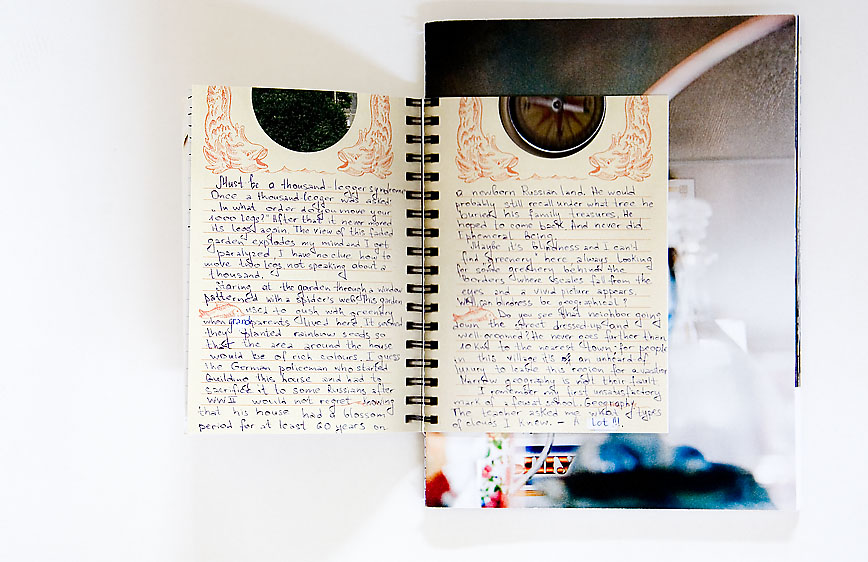 Must be a thousand-legger syndrome
Once a thousand-legger was asked:
"In what order do you move your
1000 legs?" After that it never moved
its legs again. The view of this faded
garden explodes my mind and I get
paralyzed. I have no clue how to
move two legs, not speaking about a
thousand.
Staring at the garden through a window
patterned with a spider's web. This garden
used to gush with greenery
when grandparents lived here. It
they planted rainbow seeds so
that the area around the house
would be of rich colours. I guess
the German policeman who started
building this house and had to
sacrifice it to some Russians after
WWII would not regret knowing
that his house had a blossom
period for at least 60 years on
a newborn Russian land. He would
probably still recall under what tree he
buried his family treasures. He
hoped to come back. And never did.
Ephemeral being.
Maybe it's blindness and I can't
find greenery here, always looking
for some greenery behind the
borders, where scales fall from the
eyes and a vivid picture appears.
Well, can blindness be geographical?
Do you see that neighbor going
down the street dressed-up and
well groomed? He never goes further than
10 km to the nearest town: for people
in this village it's of an unheard of
luxury to leave this region for a
Narrow geography is not their fault.
I remember my first unsatisfactory
mark at a feast school Geography.
The teacher asked me what types
of clouds I knew. – A lot!!!.